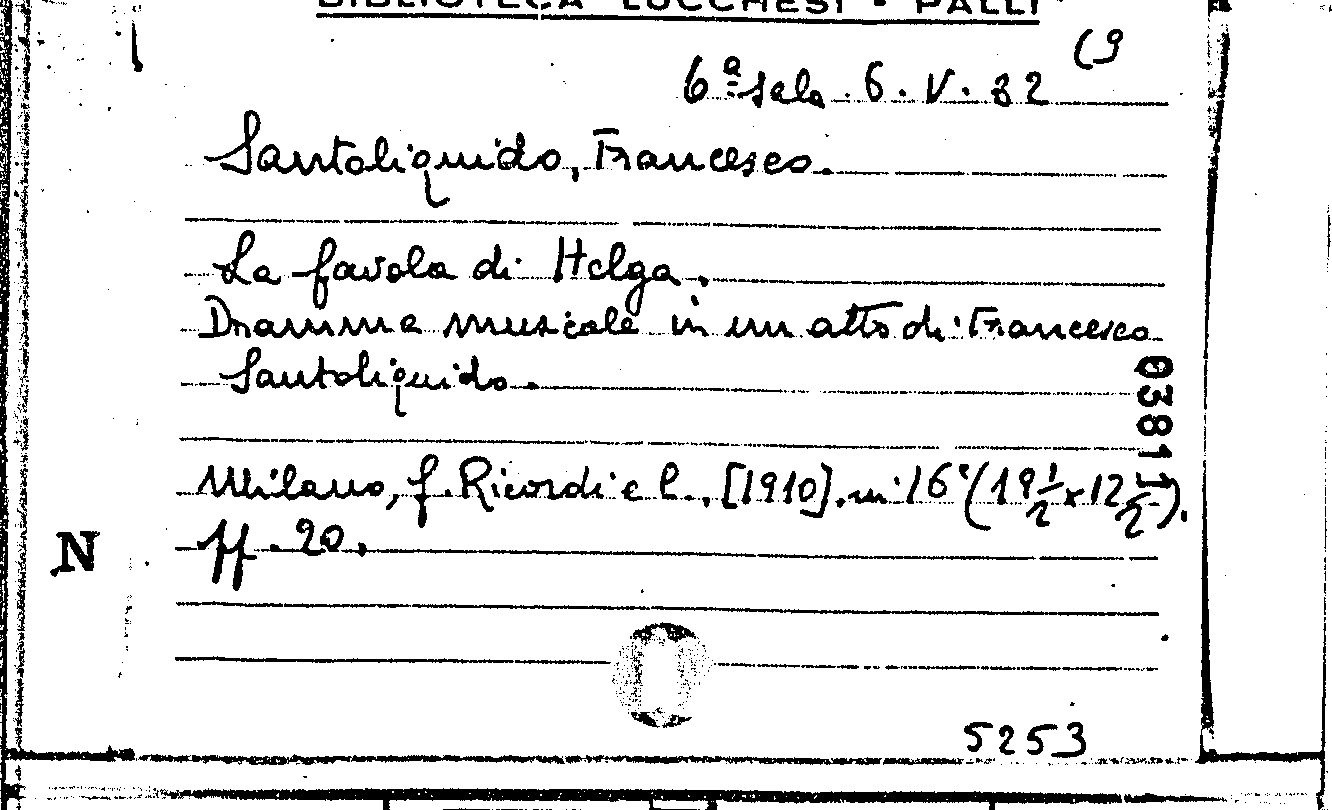 BIBLIOTECA LUCCHESI - PALLI
(9
6ª sala. 6. V. 32
Santoliquido, Francesco.
La favola di Helga.
Dramma musicale in un atto di Francesco
Santoliquido.
Milano, G. Ricordi e C., [1910]. in 16° (19 1/2 x 12 1/2).
pp. 20.
N
5253